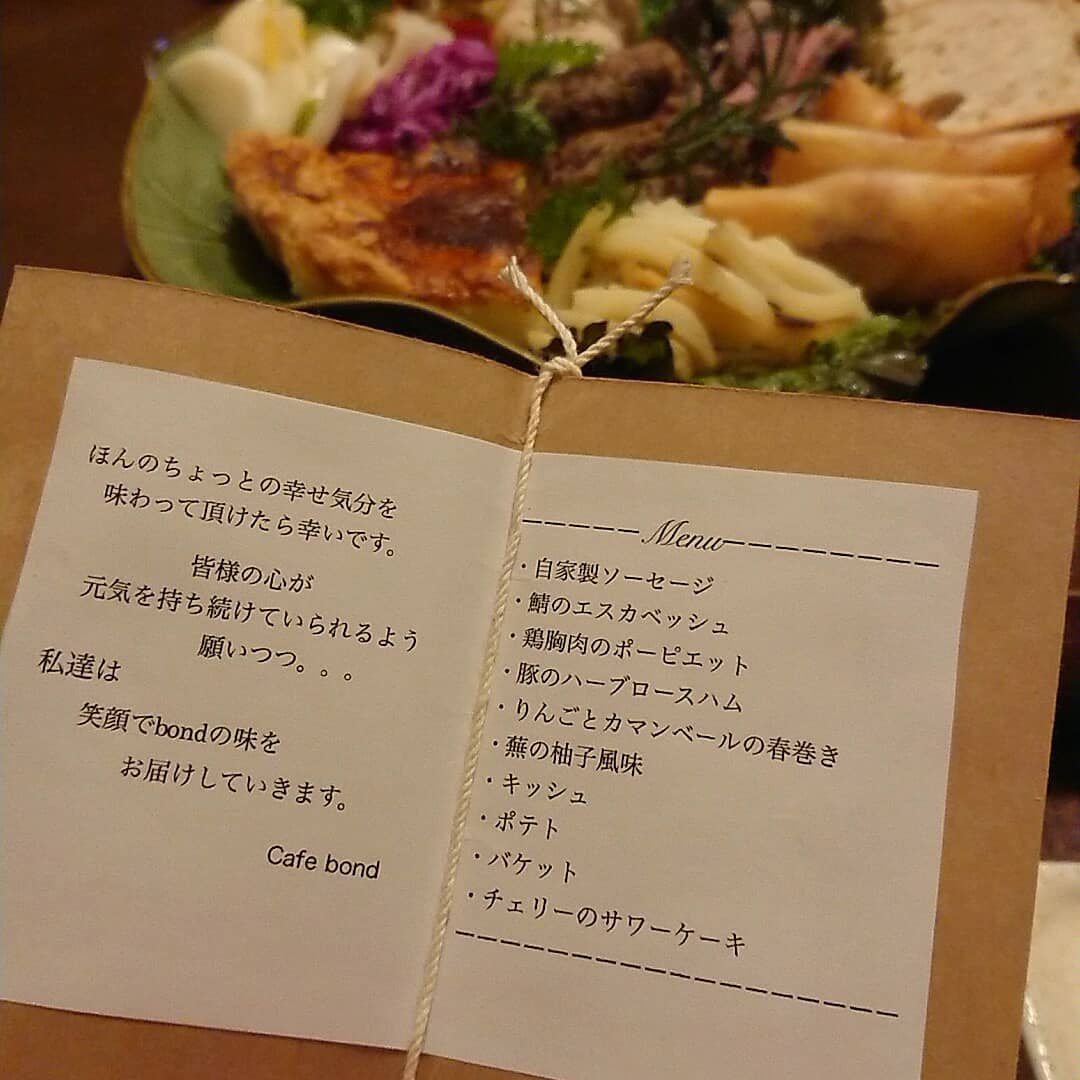 ほんのちょっとの幸せ気分を
味わって頂けたら幸いです。
皆様の心が
元気を持ち続けていられるよう
願いつつ。。。
私達は
笑顔でbondの味を
お届けしていきます。
Cafe bond
−−−−−Menu−−−−−−−−−
・自家製ソーセージ
・鯖のエスカベッシュ
・鶏胸肉のポーピエット
・豚のハーブロースハム
・りんごとカマンベールの春巻き
・蕪の柚子風味
・キッシュ
・ポテト
・バケット
・チェリーのサワーケーキ